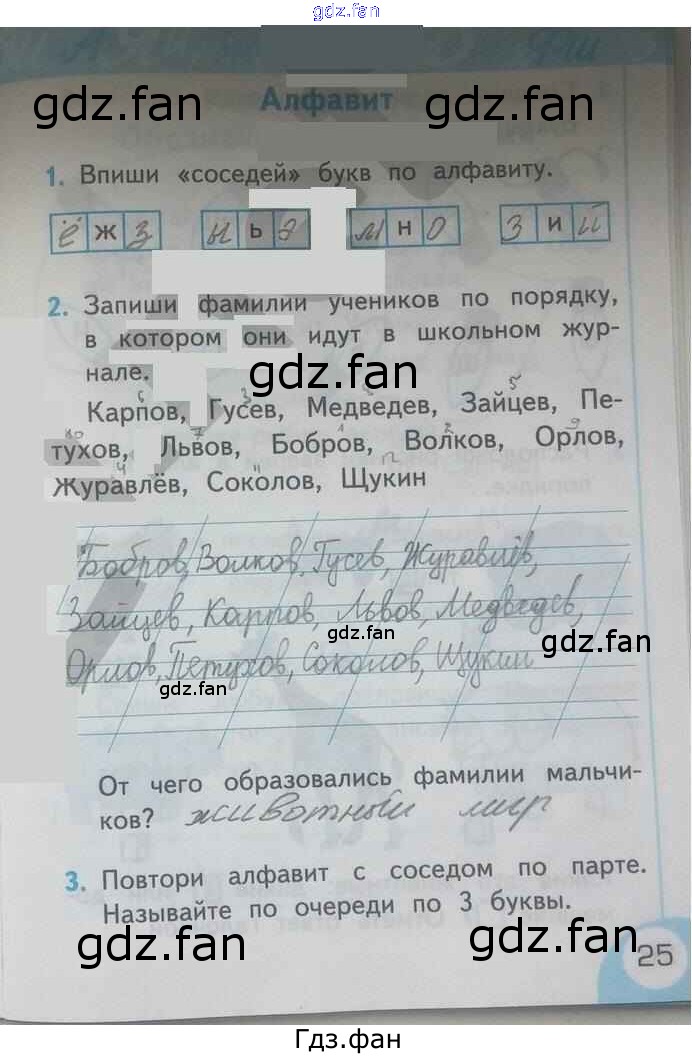 gdz.fan
gdz.fan gdz.fan
Алфавит
1. Впиши «соседей» букв по алфавиту.
ё ж з ы ь э м н о з и й
2. Запиши фамилии учеников по порядку,
в котором они идут в школьном жур-
нале.
gdz.fan
6 3 5
Карпов, Гусев, Медведев, Зайцев, Пе-
10 7 1 2 9
тухов, Львов, Бобров, Волков, Орлов,
4 11 12
Журавлёв, Соколов, Щукин
Бобров, Волков, Гусев, Журавлёв,
Зайцев, Карпов, Львов, Медведев,
gdz.fan gdz.fan
Орлов, Петухов, Соколов, Щукин
gdz.fan
От чего образовались фамилии мальчи-
ков? животный мир
3. Повтори алфавит с соседом по парте.
Называйте по очереди по 3 буквы.
gdz.fan gdz.fan
25
Гдз.фан